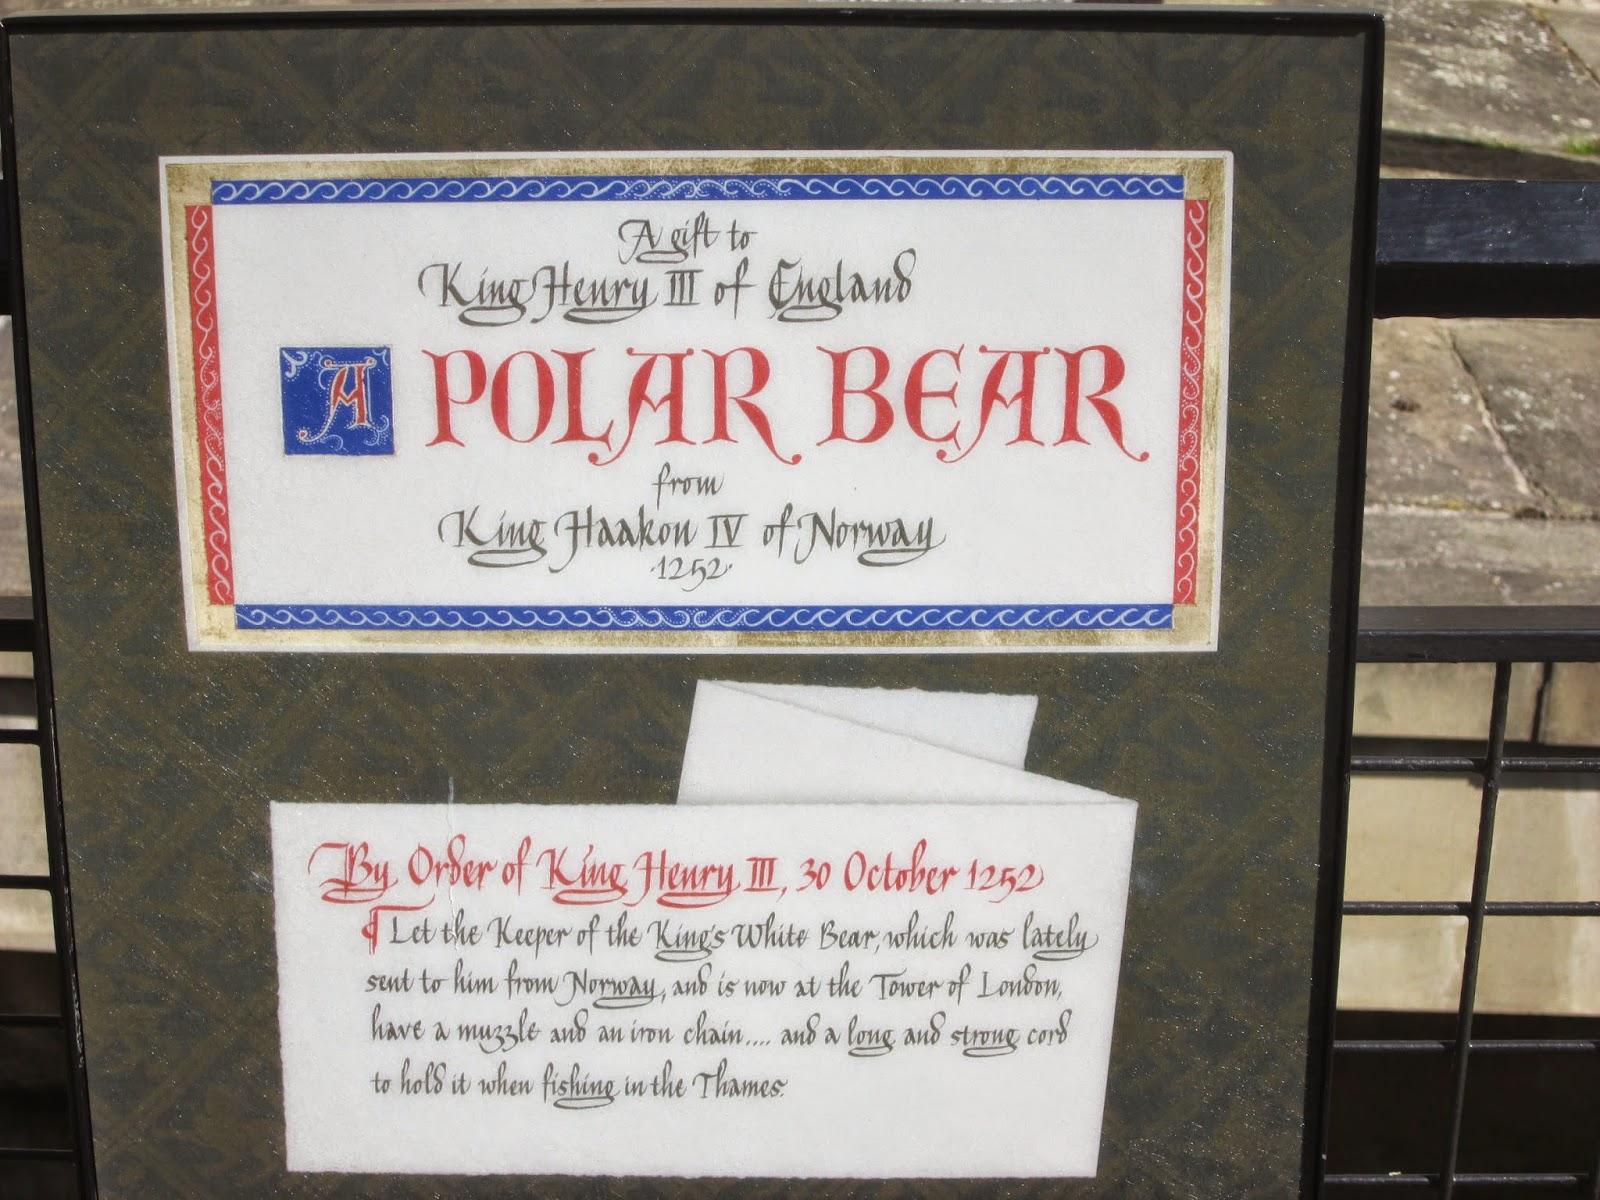 A gift to
King Henry III of England
A POLAR BEAR
from
King Haakon IV of Norway
·1252·
By Order of King Henry III, 30 October 1252
¶ Let the Keeper of the King's White Bear, which was lately
sent to him from Norway, and is now at the Tower of London,
have a muzzle and an iron chain.... and a long and strong cord
to hold it when fishing in the Thames.